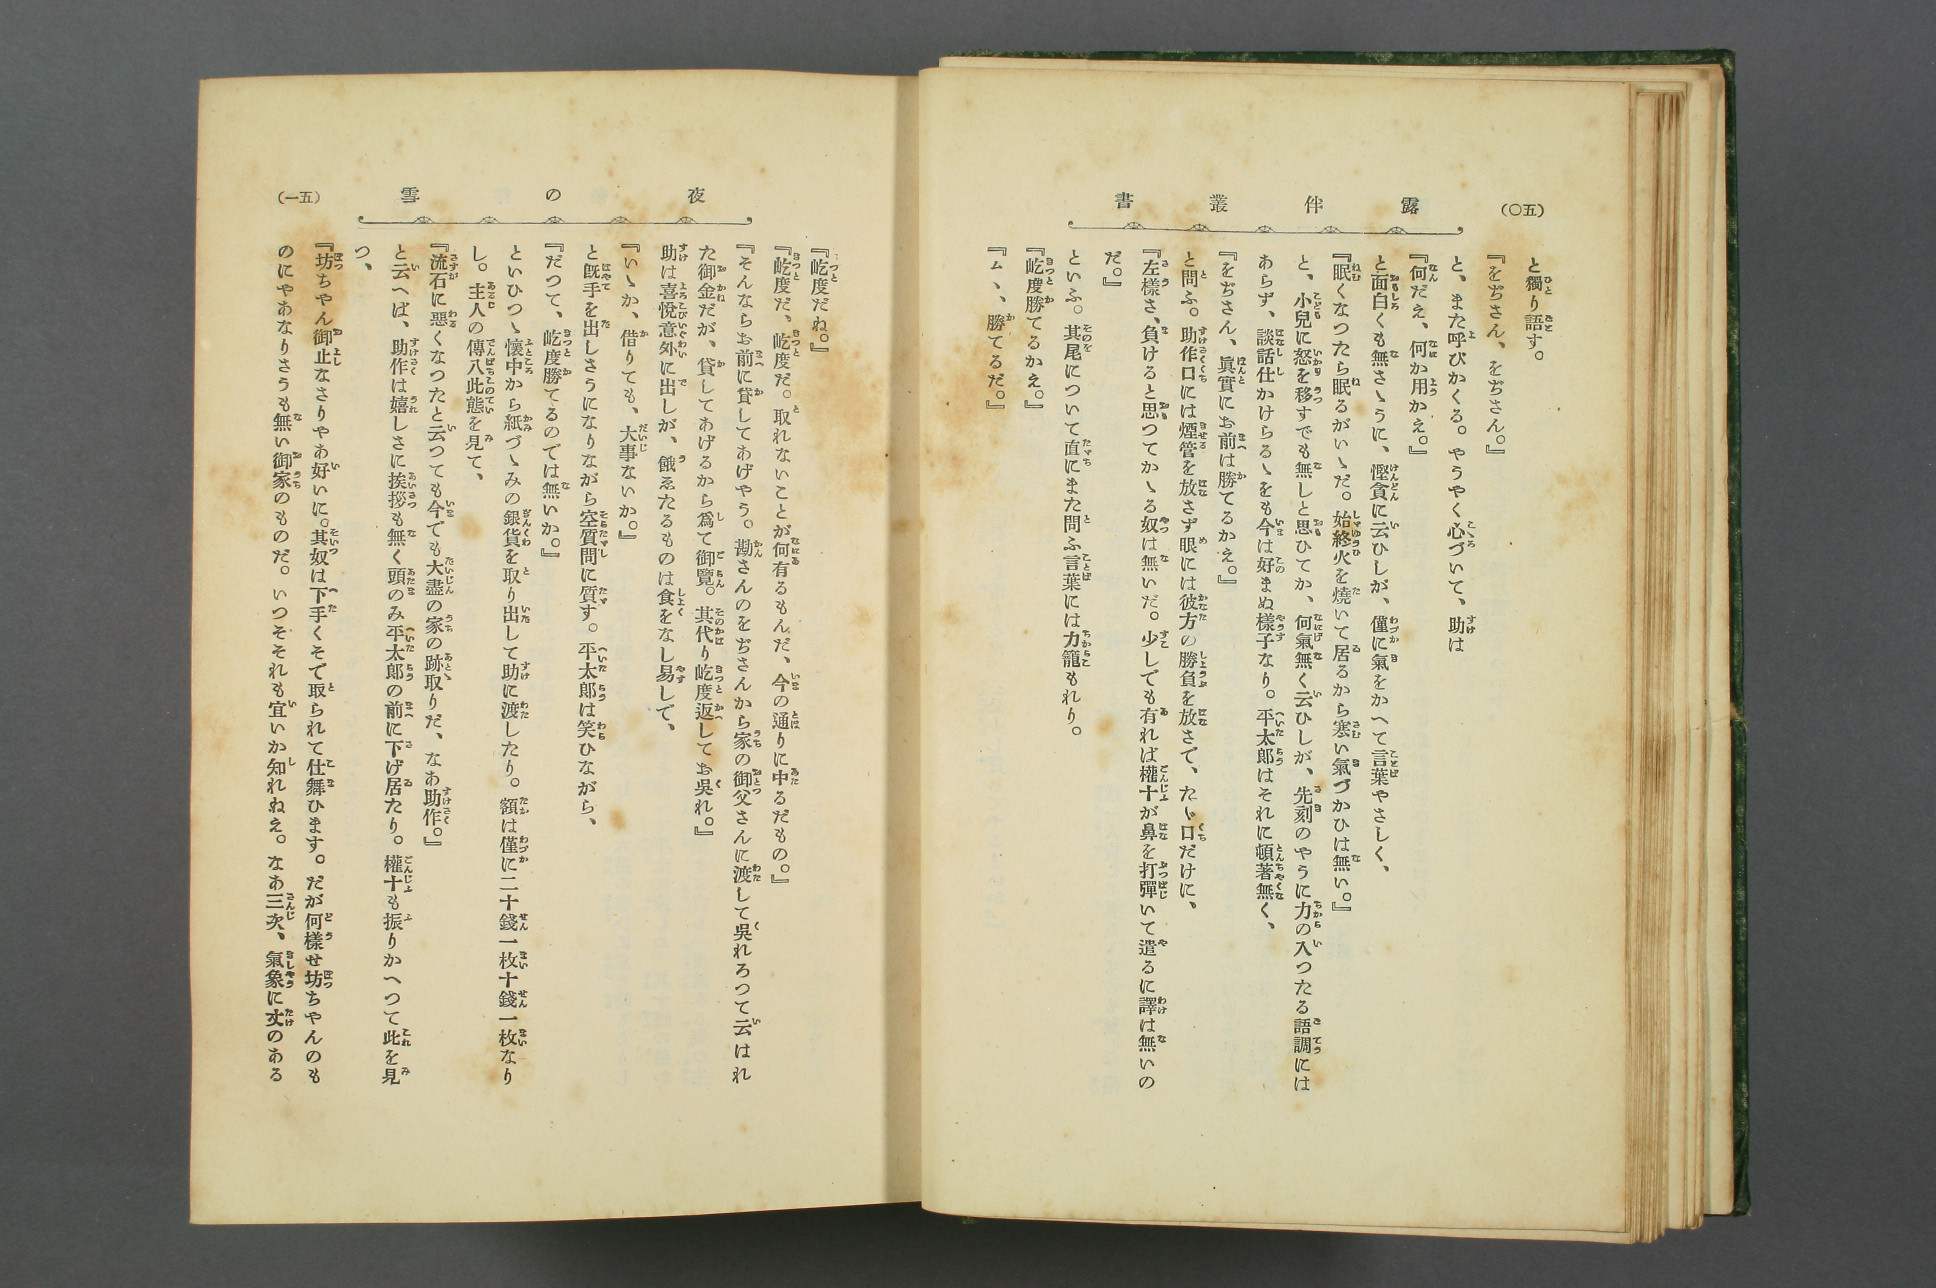 (五〇)
露伴叢書
と獨り語す。
『をぢさん、をぢさん。』
と、また呼びかくる。やうやく心づいて、助は
『何だえ、何か用かえ。』
と面白くも無さゝうに、慳貪に云ひしが、僅に氣をかへて言葉やさしく、
『眠くなつたら眠るがいゝだ。始終火を燒いて居るから寒い氣づかひは無い。』
と、小兒に怒を移すでも無しと思ひてか、何氣無く云ひしが、先刻のやうに力の入つたる語調には
あらず、談話仕かけらるゝをも今は好まぬ樣子なり。平太郎はそれに頓著無く、
『をぢさん、眞實にお前は勝てるかえ。』
と問ふ。助作口には煙管を放さず眼には彼方の勝負を放さで、たゞ口だけに、
『左樣さ、負けると思つてかゝる奴は無いだ。少しでも有れば權十が鼻を打彈いて遣るに譯は無いの
だ。』
といふ。其尾について直にまた問ふ言葉には力籠もれり。
『屹度勝てるかえ。』
『ム、、勝てるだ。』
夜の雪
(五一)
『屹度だね。』
『屹度だ、屹度だ。取れないことが何有るもんだ、今の通りに中るだもの。』
『そんならお前に貸してあげやう。勘さんのをぢさんから家の御父さんに渡して吳れろつて云はれ
た御金だが、貸してあげるから爲て御覽。其代り屹度返してお吳れ。』
助は喜悅意外に出しが、餓ゑたるものは食をなし易して、
『いゝか、借りても、大事ないか。』
と既手を出しさうになりながら空質問に質す。平太郎は笑ひながら、
『だつて、屹度勝てるのでは無いか。』
といひつゝ懷中から紙づゝみの銀貨を取り出して助に渡したり。額は僅に二十錢一枚十錢一枚なり
し。主人の傳八此態を見て、
『流石に惡くなつたと云つても今でも大盡の家の跡取りだ、なあ助作。』
と云へば、助作は嬉しさに挨拶も無く頭のみ平太郎の前に下げ居たり。權十も振りかへつて此を見
つ、
『坊ちやん御止なさりやあ好いに。其奴は下手くそで取られて仕舞ひます。だが何樣せ坊ちやんのも
のにやあなりさうも無い御家のものだ。いつそそれも宜いか知れねえ。なあ三次、氣象に丈のある